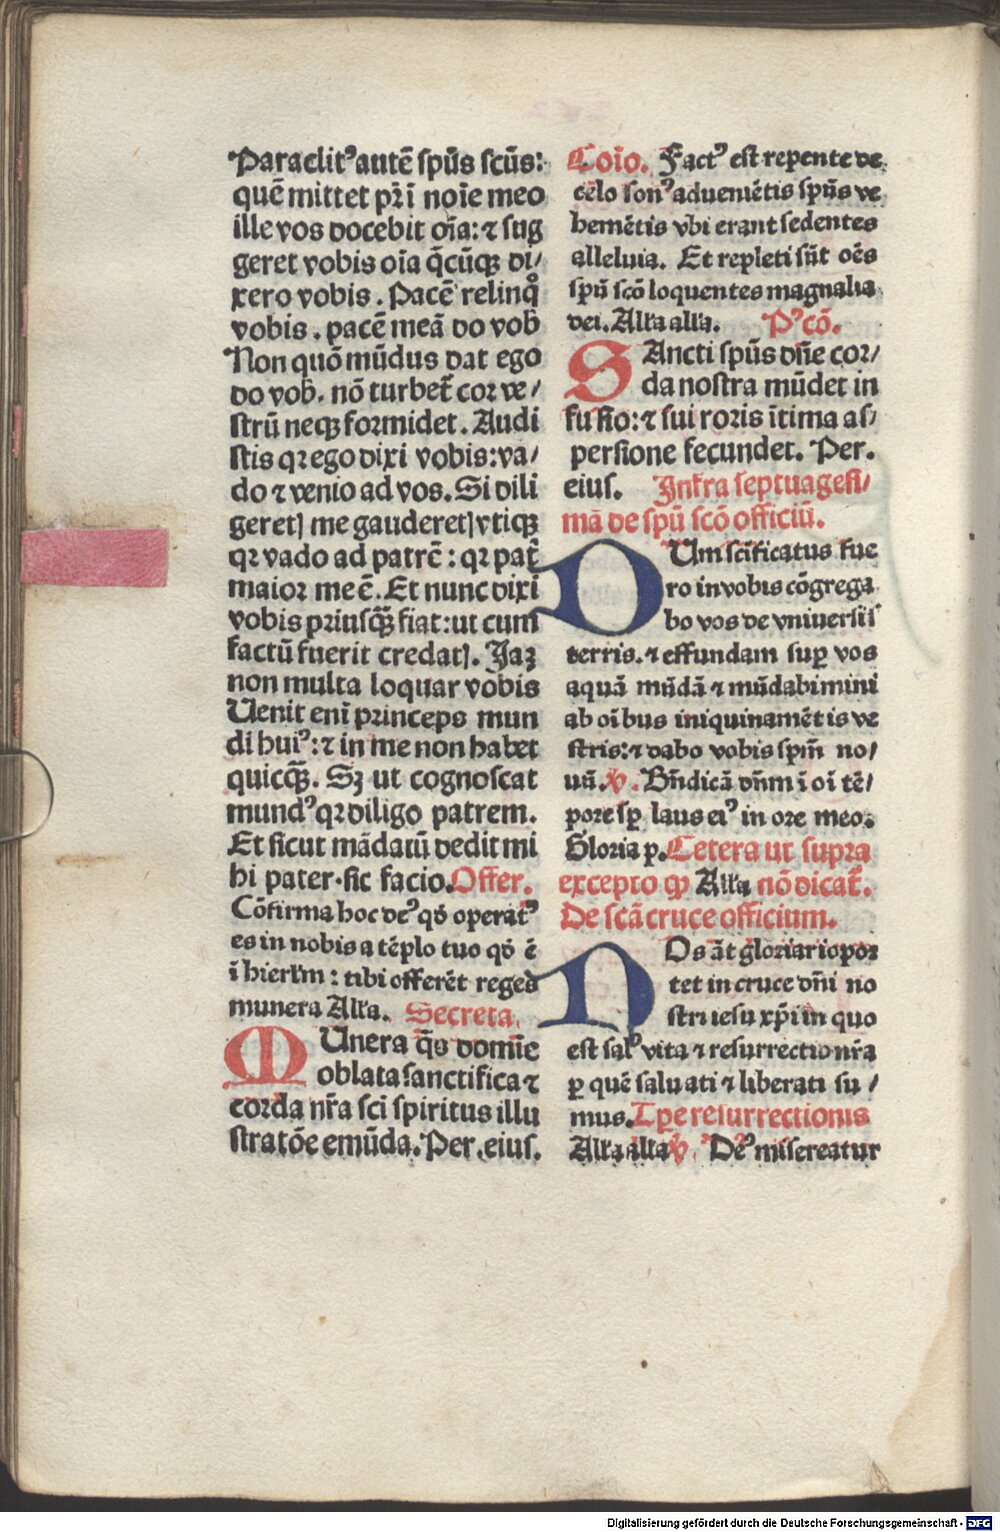 Paraclitꝰ autē ſpūs ſcūs:
quē mittet pr̄ i noīe meo
ille vos docebit oīa: ⁊ ſug
geret vobis oīa q̄cūqꝫ di/
xero vobis. Pacē relinqͦ
vobis. pacē meā do vob̄
Non quō mūdus dat ego
do vob̄. nō turbet̄ cor ve/
ſtrū neqꝫ formidet. Audi
ſtis qꝛ ego dixi vobis: va/
do ⁊ venio ad vos. Si dili
geretꝭ me gauderetꝭ vtiqꝫ
qꝛ vado ad patrē: qꝛ pat̄
maior me ē. Et nunc dixi
vobis priuſqꝫ̄ fiat: ut cum
factū fuerit credatꝭ. Jaꝫ
non multa loquar vobis
Uenit eni princeps mun
di huiꝰ: ⁊ in me non habet
quicqꝫ̄. Sꝫ ut cognoſcat
mundꝰ qꝛ diligo patrem.
Et ſicut mādatū dedit mi
hi pater. ſic facio. Offer.
Cōfirma hoc deꝰ qď operatꝰ
es in nobis a tēplo tuo qď ē
ī hierl̄m: tibi offerēt reges
munera Alľa. Secreta.
MUnera q̄s domīe
oblata ſanctifica ⁊
corda nr̄a ſci ſpiritus illu
ſtratōe emūda. Per. eiuſ.
Coīo. Factꝰ eſt repente de
celo ſonꝰ aduenietis ſpūs ve
hemētis vbi erant ſedentes
alleluia. Et repleti ſūt oēs
ſpū ſcō loquentes magnalia
dei. Alľa alľa. Pꝰcō.
SAncti ſpūs dn̄e cor/
da noſtra mūdet in
fuſio: ⁊ ſui roris ītima aſ/
perſione fecundet. Per.
eiuſ. Infra ſeptuageſi/
mā de ſpū ſcō officiū.
DUm ſcīficatus fue
ro in vobis cōgrega
bo vos de vniuerſis
terris. ⁊ effundam ſuꝑ vos
aquā mūdā ⁊ mūdabimini
ab oībus iniquinamētis ve
ſtris: ⁊ dabo vobis ſpm̄ no/
uū. ℣. Bn̄dicā dn̄m ī oī tē/
pore ſꝑ laus eiꝰ in ore meo.
Gloria p. Cetera ut ſupra
excepto ꝙ Alľa nō dicat̄.
De ſcā cruce officium.
NOs āt gloriari opor
tet in cruce dn̄i no
ſtri ieſu xp̄i in quo
eſt ſalꝰ vita ⁊ reſurrectio nr̄a
ꝑ quē ſaluati ⁊ liberati ſu/
mus. Tꝑe reſurrectionis
Alľa alľa ℣. Deꝰ miſereatur
Digitalisierung gefördert durch die Deutsche Forschungsgemeinschaft - DFG